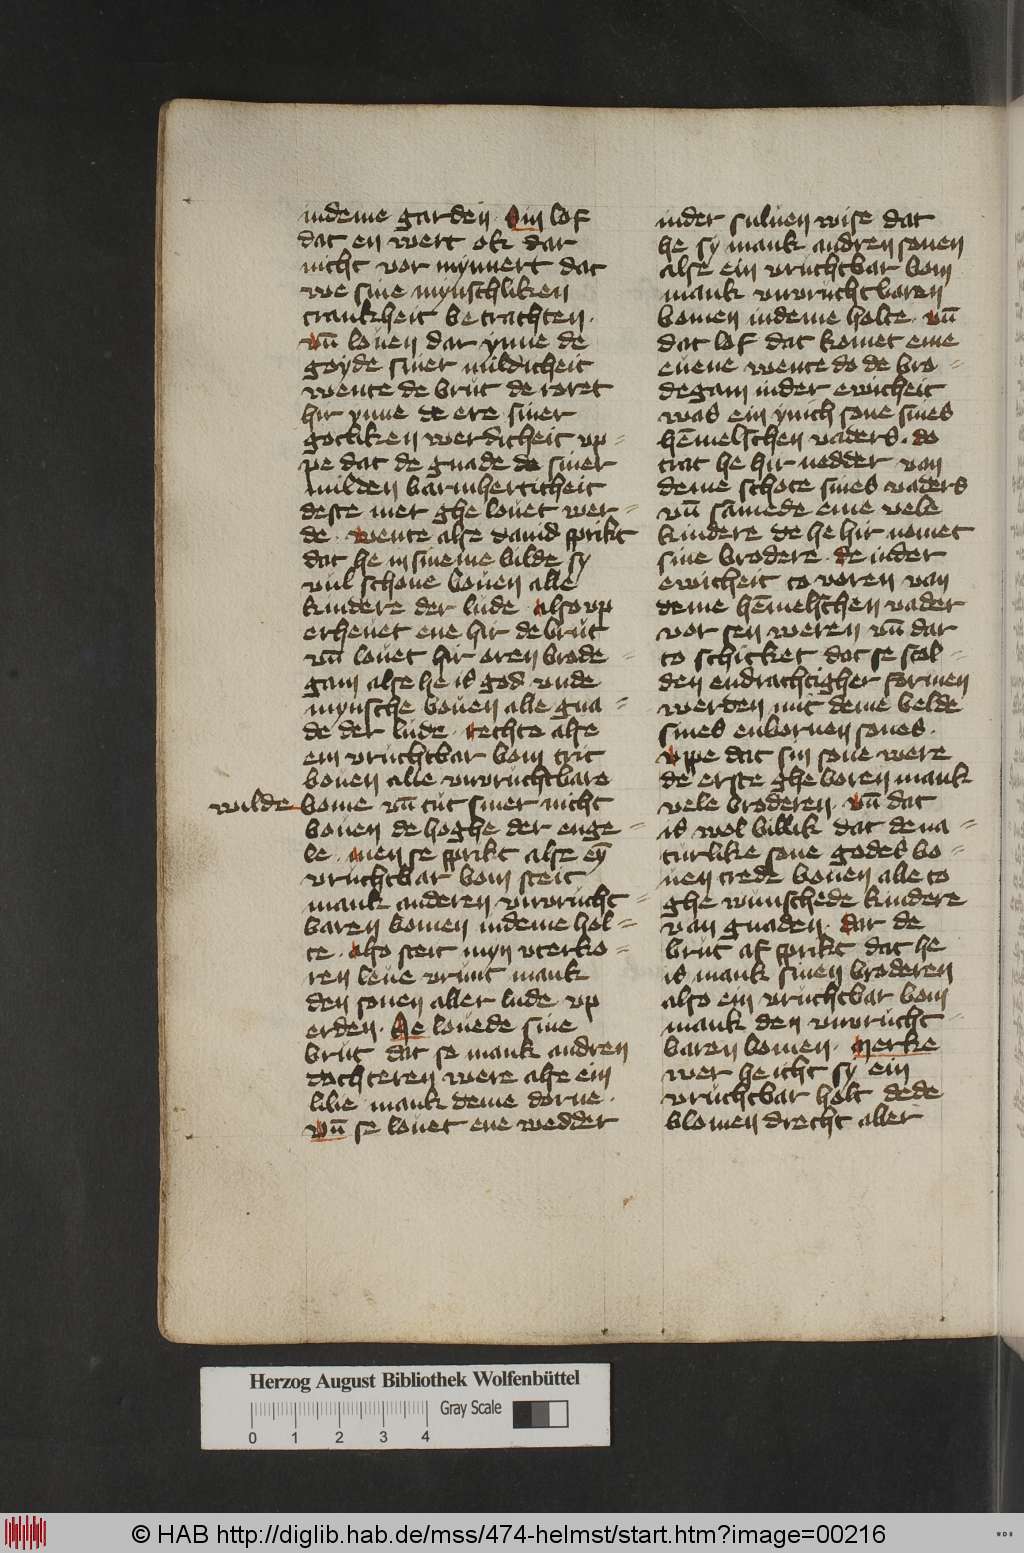 indeme garden. Sin lof
dat en wert ok dar
nicht vor mynnert dat
we sine mynschliken
crankheit betrachten.
vn̄ louen dar ynne de
goyde siner mildicheit
wente de brut de roret
hir ynne de ere siner
gotliken werdicheit vp=
pe dat de gnade de siner
milden barmherticheit
deste mer ghe louet wer=
de. wente alse dauid sprikt
dat he in sineme bilde sy
vul schone bouen alle
kindere der lude also vp
erheuet ene hir de brut
vn̄ louet hir oren brode=
gam alse he is god vnde
mynsche bouen alle gna=
de der lude. rechte alse
ein vruchtbar bom trit
bouen alle vnvruchtbare
wilde bome vn̄ tut siner nicht
bouen de hoghe der enge=
le. men se sprikt alse eȳ
vruchtbar bom steit
mank anderen vnvrucht=
baren bomen indeme hol=
te. also steit myn vterko=
ren leue vrunt mank
den sonen aller lude vp
erden. He louede sine
brut dat se mank andren
dochteren were alse ein
lilie mank deme dorne.
vn̄ se louet ene wedder
inder suluen wise dat
he sy mank andren sonen
alse ein vruchtbar bom
mank vnvruchtbaren
bomen indeme holte. vn̄
dat lof dat komet eme
euene wente do de bro=
degam inder ewicheit
was ein ynich sone sines
hēmelschen vaders. do
trat he hir nedder van
deme schote sines vaders
vn̄ sāmede eme vele
kindere de he hir nomet
sine brodere. de inder
ewicheit to voren van
deme hēmelschen vader
vor sen weren vn̄ dar
to schicket dat se scol=
den endrachtigher formen
werden mit deme belde
sines enbornen sones.
vppe dat sin sone were
de erste ghe boren mank
vele broderen. vn̄ dat
is wol billik dat de na=
turlike sone godes bo=
uen trede bouen alle to
ghe wunschede kindere
van gnaden. dar de
brut af sprikt dat he
is mank sinen broderen
also ein vruchtbar bom
mank den vnvrucht=
baren bomen. Merke
wer he icht sy ein
vruchtbar holt dede
blomen drecht aller
Herzog August Bibliothek Wolfenbüttel
Gray Scale
0 1 2 3 4
© HAB http://diglib.hab.de/mss/474-helmst/start.htm?image=00216